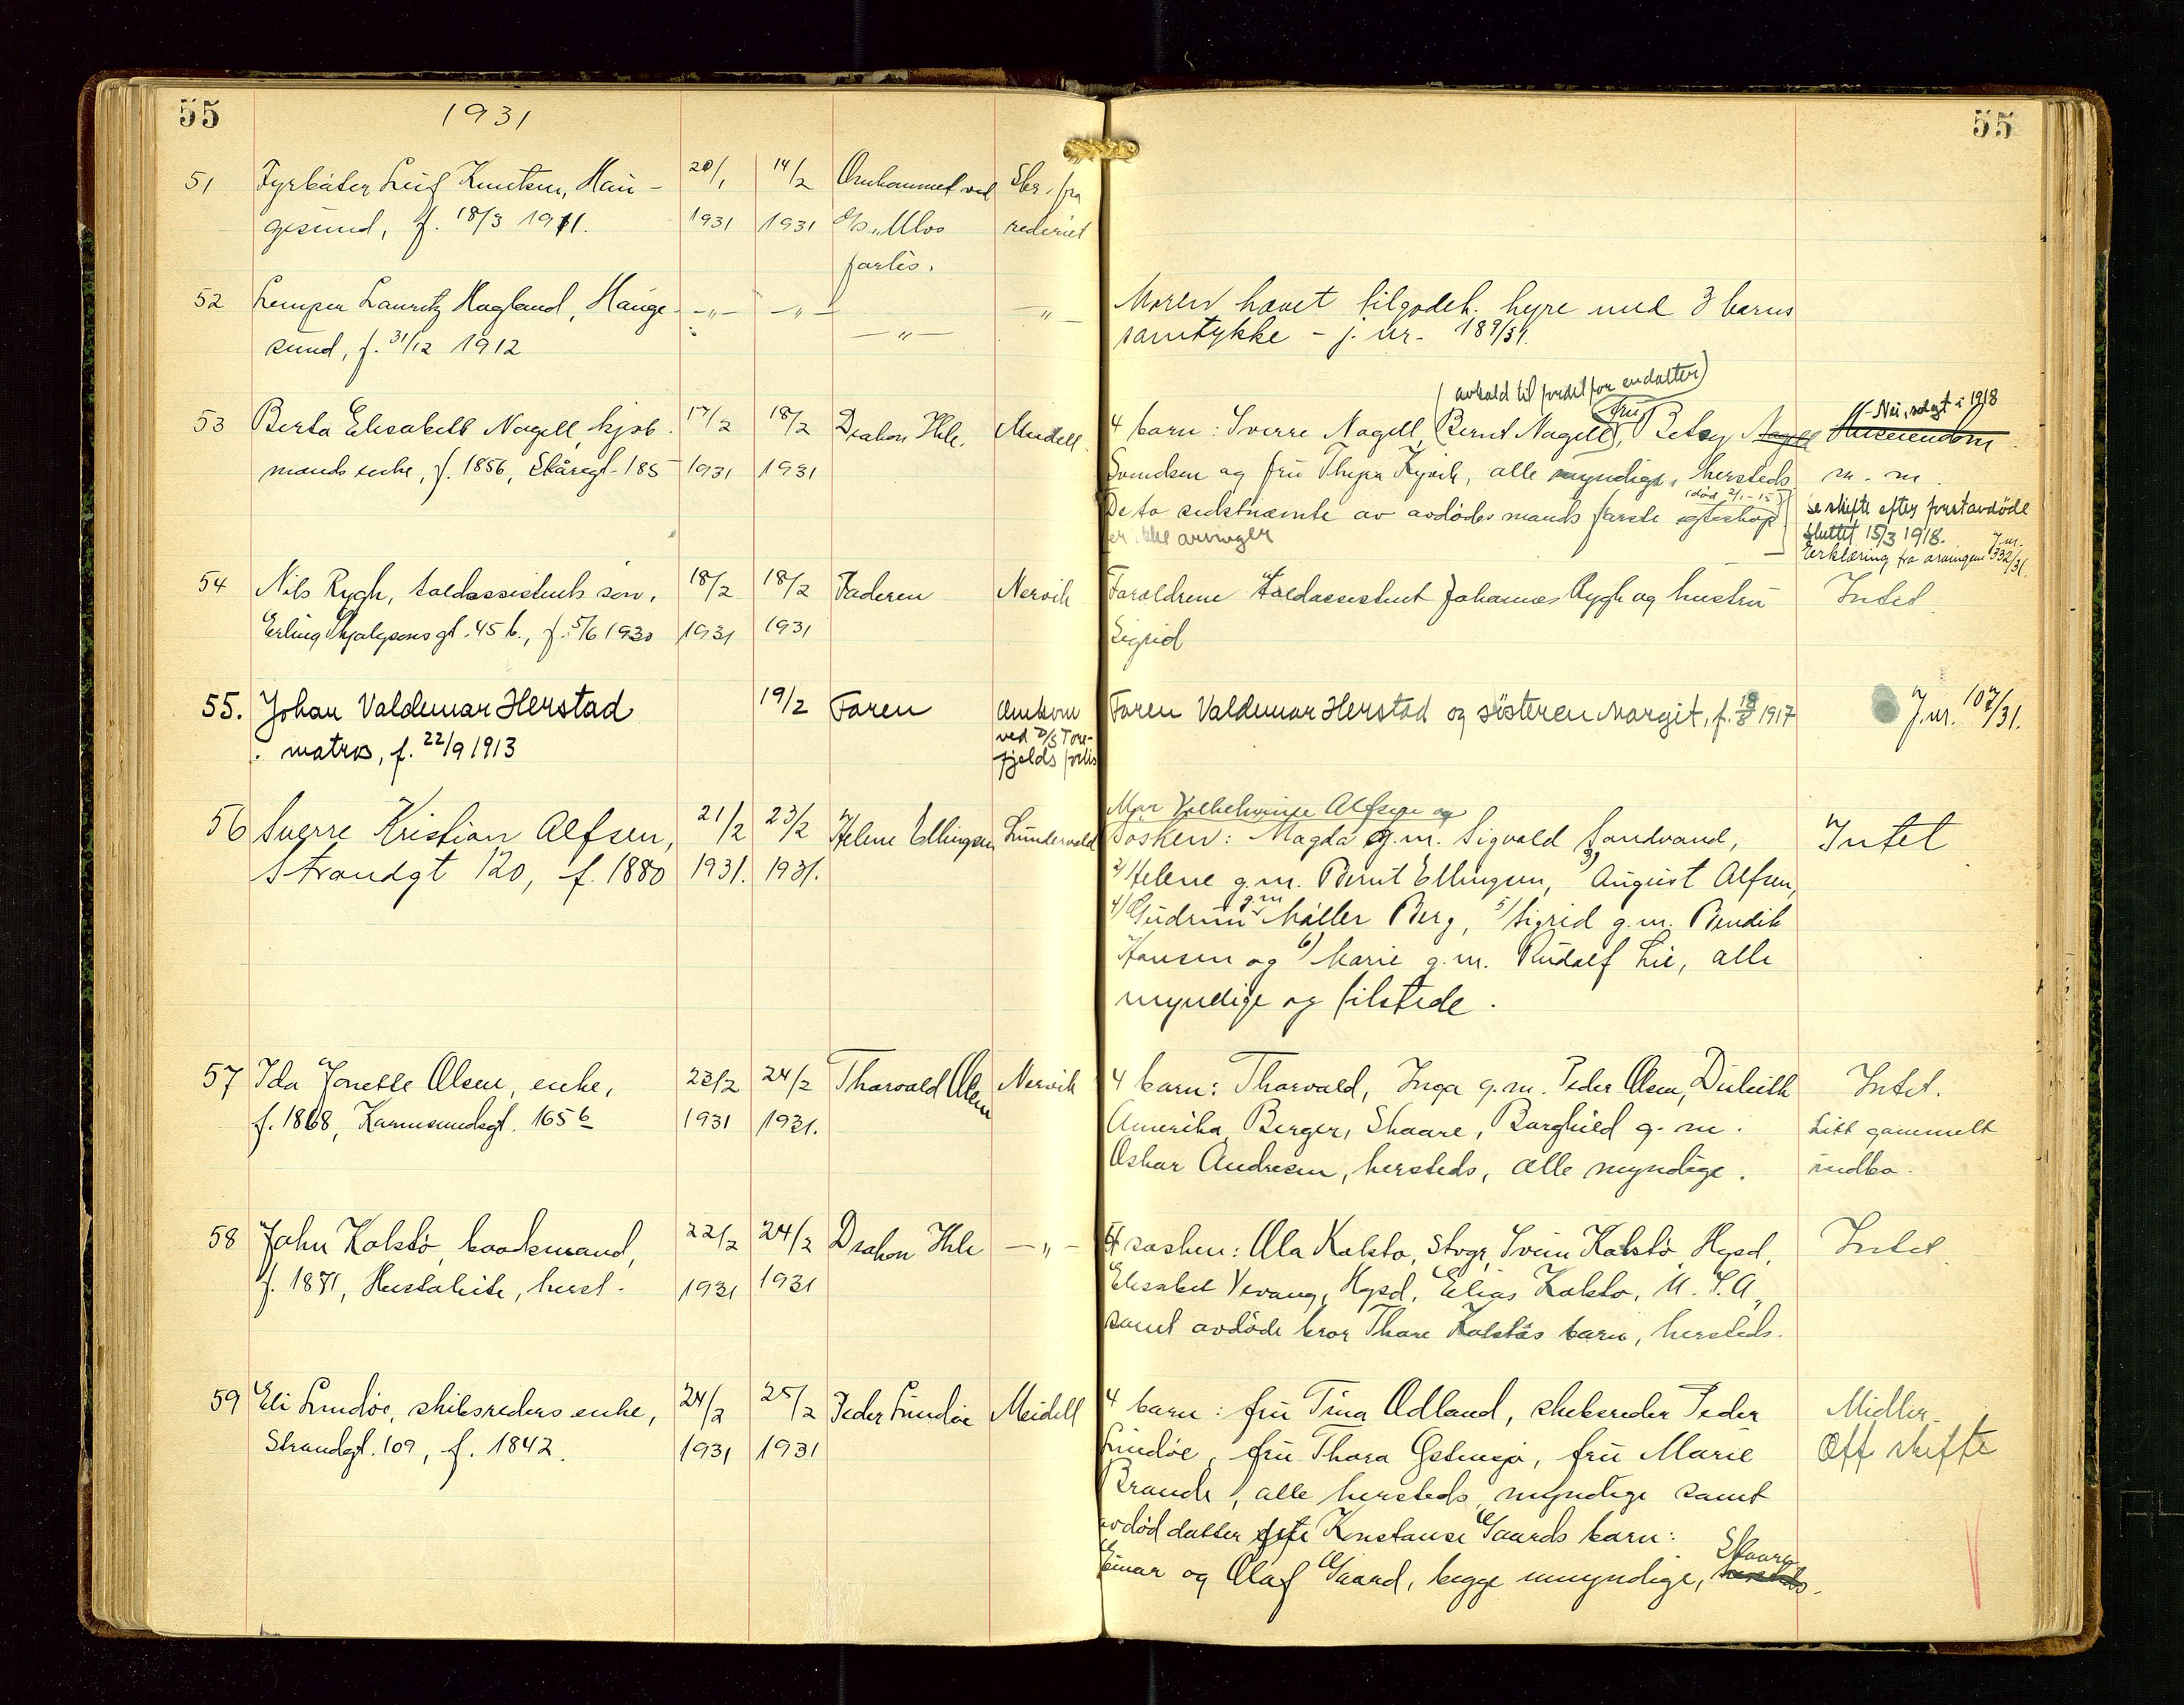 55
1931
55
51 Fyrbøter Leif Knutsen, Hau- 20/1 14/2 Omkommet ved Skr. fra
gesund, f. 18/3 1911. 1931 1931 forlis. rederiet
52 Lemper Lauritz Hagland, Hauge- -"- -"- -"- -"- Moren hævet tilgodeh. hyre med 3 barns
sund, f. 31/12 1912 samtykke - j. nr. 189/31.
(avkald til fordel for en datter)
53 Berta Elisabeth Nagell, kjøb- 17/2 18/2 Diakon Ihle. Meidell. 4 barn: Sverre Nagell, (Bernt Nagell), fru Betsy Nagell Huseiendom Nei, solgt i 1918
mands enke, f. 1856, Skåregt. 185 1931 1931 Svendsen og fru Thyra Kyvik, alle myndige, hersteds. m. m.
(død 2/1-15)
De to sidstnæmte av avdødes mands første egteskap Se skifte efter førstavdøde
er ikke arvinger sluttet 15/3 1918.
Erklæring fra arvingene J.nr. 332/31.
54 Nils Rygh, toldassistents søn, 18/2 18/2 Faderen Nervik Forældrene toldassistent Johannes Rygh og hustru Intet.
Erling Skjalgsons gt. 45 b., f. 5/6 1930 1931 1931 Sigrid
55. Johan Valdemar Herstad 19/2 Faren Omkom Faren Valdemar Herstad og søsteren Margit, f. 18/8 1917 J.nr. 107/31.
matros, f. 22/9 1913 ved D/S Tore-
fjelds forlis
Mor Vilhelmine Alfsen og
56 Sverre Kristian Alfsen, 21/2 23/2 Helene Ellingsen Lundevold Søsken: Magda g.m. Sigvald Sandvand, Intet
Strandgt 120, f. 1880 1931. 1931. 2) Helene g.m. Bernt Ellingsen, 3) August Alfsen,
4) Gudrun g.m. Møller Berg, 5) Sigrid g.m. Bendik
Hansen og 6) Marie g.m. Rudolf Lie, alle
myndige og tilstede.
57 Ida Jonette Olsen, enke, 23/2 24/2 Tharvald Olsen Nervik 4 barn: Tharvald, Inga g.m. Peder Olsen, Duluth Intet.
f. 1868, Karmsundsgt. 165 b 1931 1931. Amerika, Berger, Skaare, Borghild g.m. Litt gammelt
Oskar Andresen, hersteds, alle myndige. indbo.
58 John Kolstø, baadsmand, 22/2 24/2 Diakon Ihle -"- søsken: Ola Kolstø, Stvgr, Svein Kolstø, Hgsd, Intet
f. 1871, herst. 1931 1931 Elisabet Vevang, Hgsd, Elias Kolstø, U.S.A.,
samt avdøde bror Thore Kolstøs barn, hersteds.
59 Eli Lindøe, skibsreders enke, 24/2 25/2 Peder Lindøe Meidell 4 barn: fru Tina Odland, skibsreder Peder Midler.
Strandgt. 109, f. 1842. 1931 1931 Lindøe, fru Thora, fru Marie Off skifte
alle hersteds, myndige samt
avdød datter Konstanse Gaards barn:
Einar og Olaf Gaard, begge umyndige, Skaare hersteds.